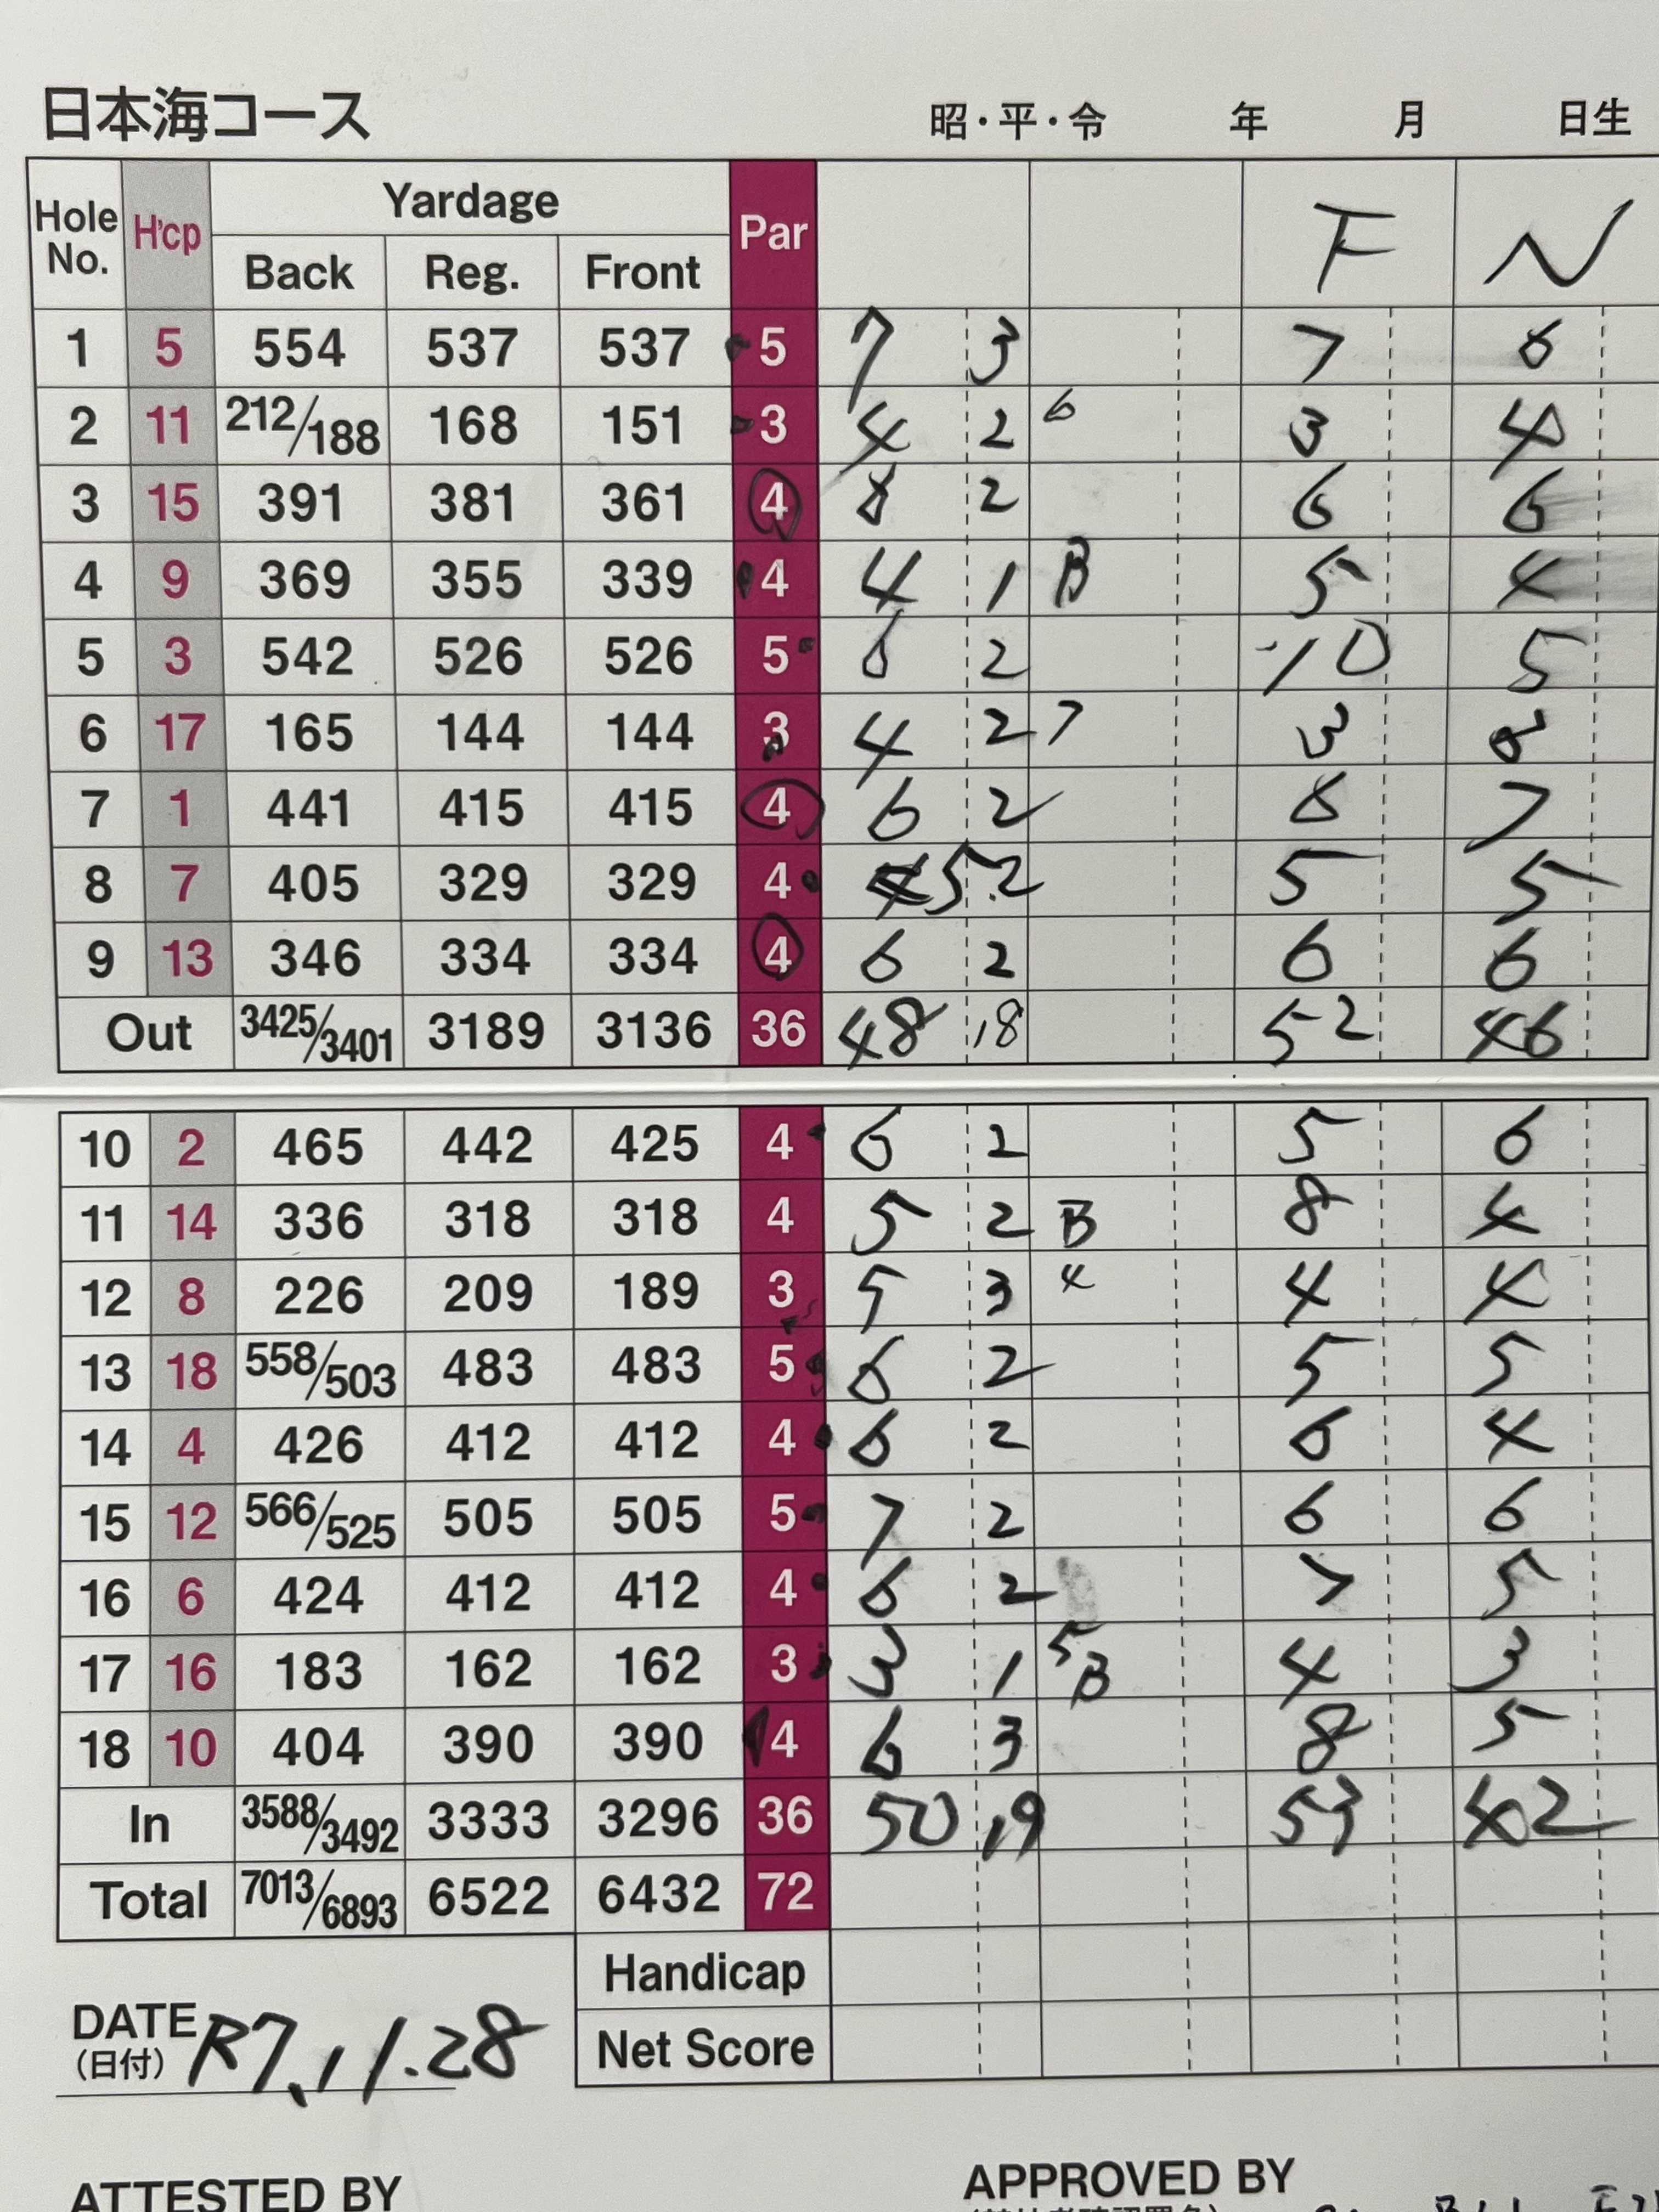 日本海コース 昭・平・令 年 月 日生
Hole No. H'cp Yardage Par F N
Back Reg. Front
1 5 554 537 537 5 7 3 7 6
2 11 212/188 168 151 3 4 2 6 3 4
3 15 391 381 361 4 8 2 6 6
4 9 369 355 339 4 4 1 B 5 4
5 3 542 526 526 5 6 2 10 5
6 17 165 144 144 3 4 2 7 3
7 1 441 415 415 4 6 2 8 7
8 7 405 329 329 4 5 2 5 5
9 13 346 334 334 4 6 2 6 6
Out 3425/3401 3189 3136 36 48 18 52 46
10 2 465 442 425 4 6 2 5 6
11 14 336 318 318 4 5 2 B 8 4
12 8 226 209 189 3 5 3 4 4 4
13 18 558/503 483 483 5 6 2 5 5
14 4 426 412 412 4 6 2 6 4
15 12 566/525 505 505 5 7 2 6 6
16 6 424 412 412 4 6 2 7 5
17 16 183 162 162 3 3 1 5 B 4 3
18 10 404 390 390 4 6 3 8 5
In 3588/3492 3333 3296 36 50 19 53 42
Total 7013/6893 6522 6432 72
Handicap
DATE (日付) R7.11.28
Net Score
ATTESTED BY
APPROVED BY